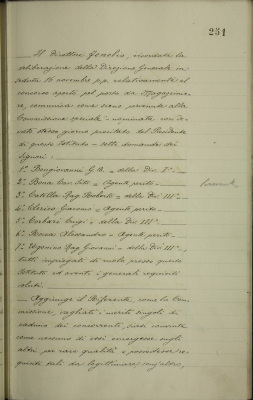 231
Il Direttore Generale, ricordata la
deliberazione della Direzione Generale in
seduta 16 novembre p.p. relativamente al
concorso aperto pel posto di Magazzinie
re, comunica come siano pervenute alla
Commissione speciale nominata con
stesso giorno presieduta dal Presidente
di questo Istituto le domande dei
Signori:
1° Bongiovanni G.B. della Div. I°
2° Bona Cav. agente perito
3° Catella Rag. della Div. III°
4° Clerico Giacomo Agente perito
5° Corbari Luigi della Div. III°
6° Alessandro Agente perito
7° Rag. Giovanni della Div. III°
tutti impiegati di ruolo presso questo
Istituto ed aventi i generali requisiti
voluti.
Aggiunge il Riferente, come la Com
missione, vagliati i meriti singoli di
cadauno dei concorrenti, siasi convinta
come nessuno di essi emergesse sugli
altri per rare qualità o possedesse re
quisiti tali da legittimare senz'altro,